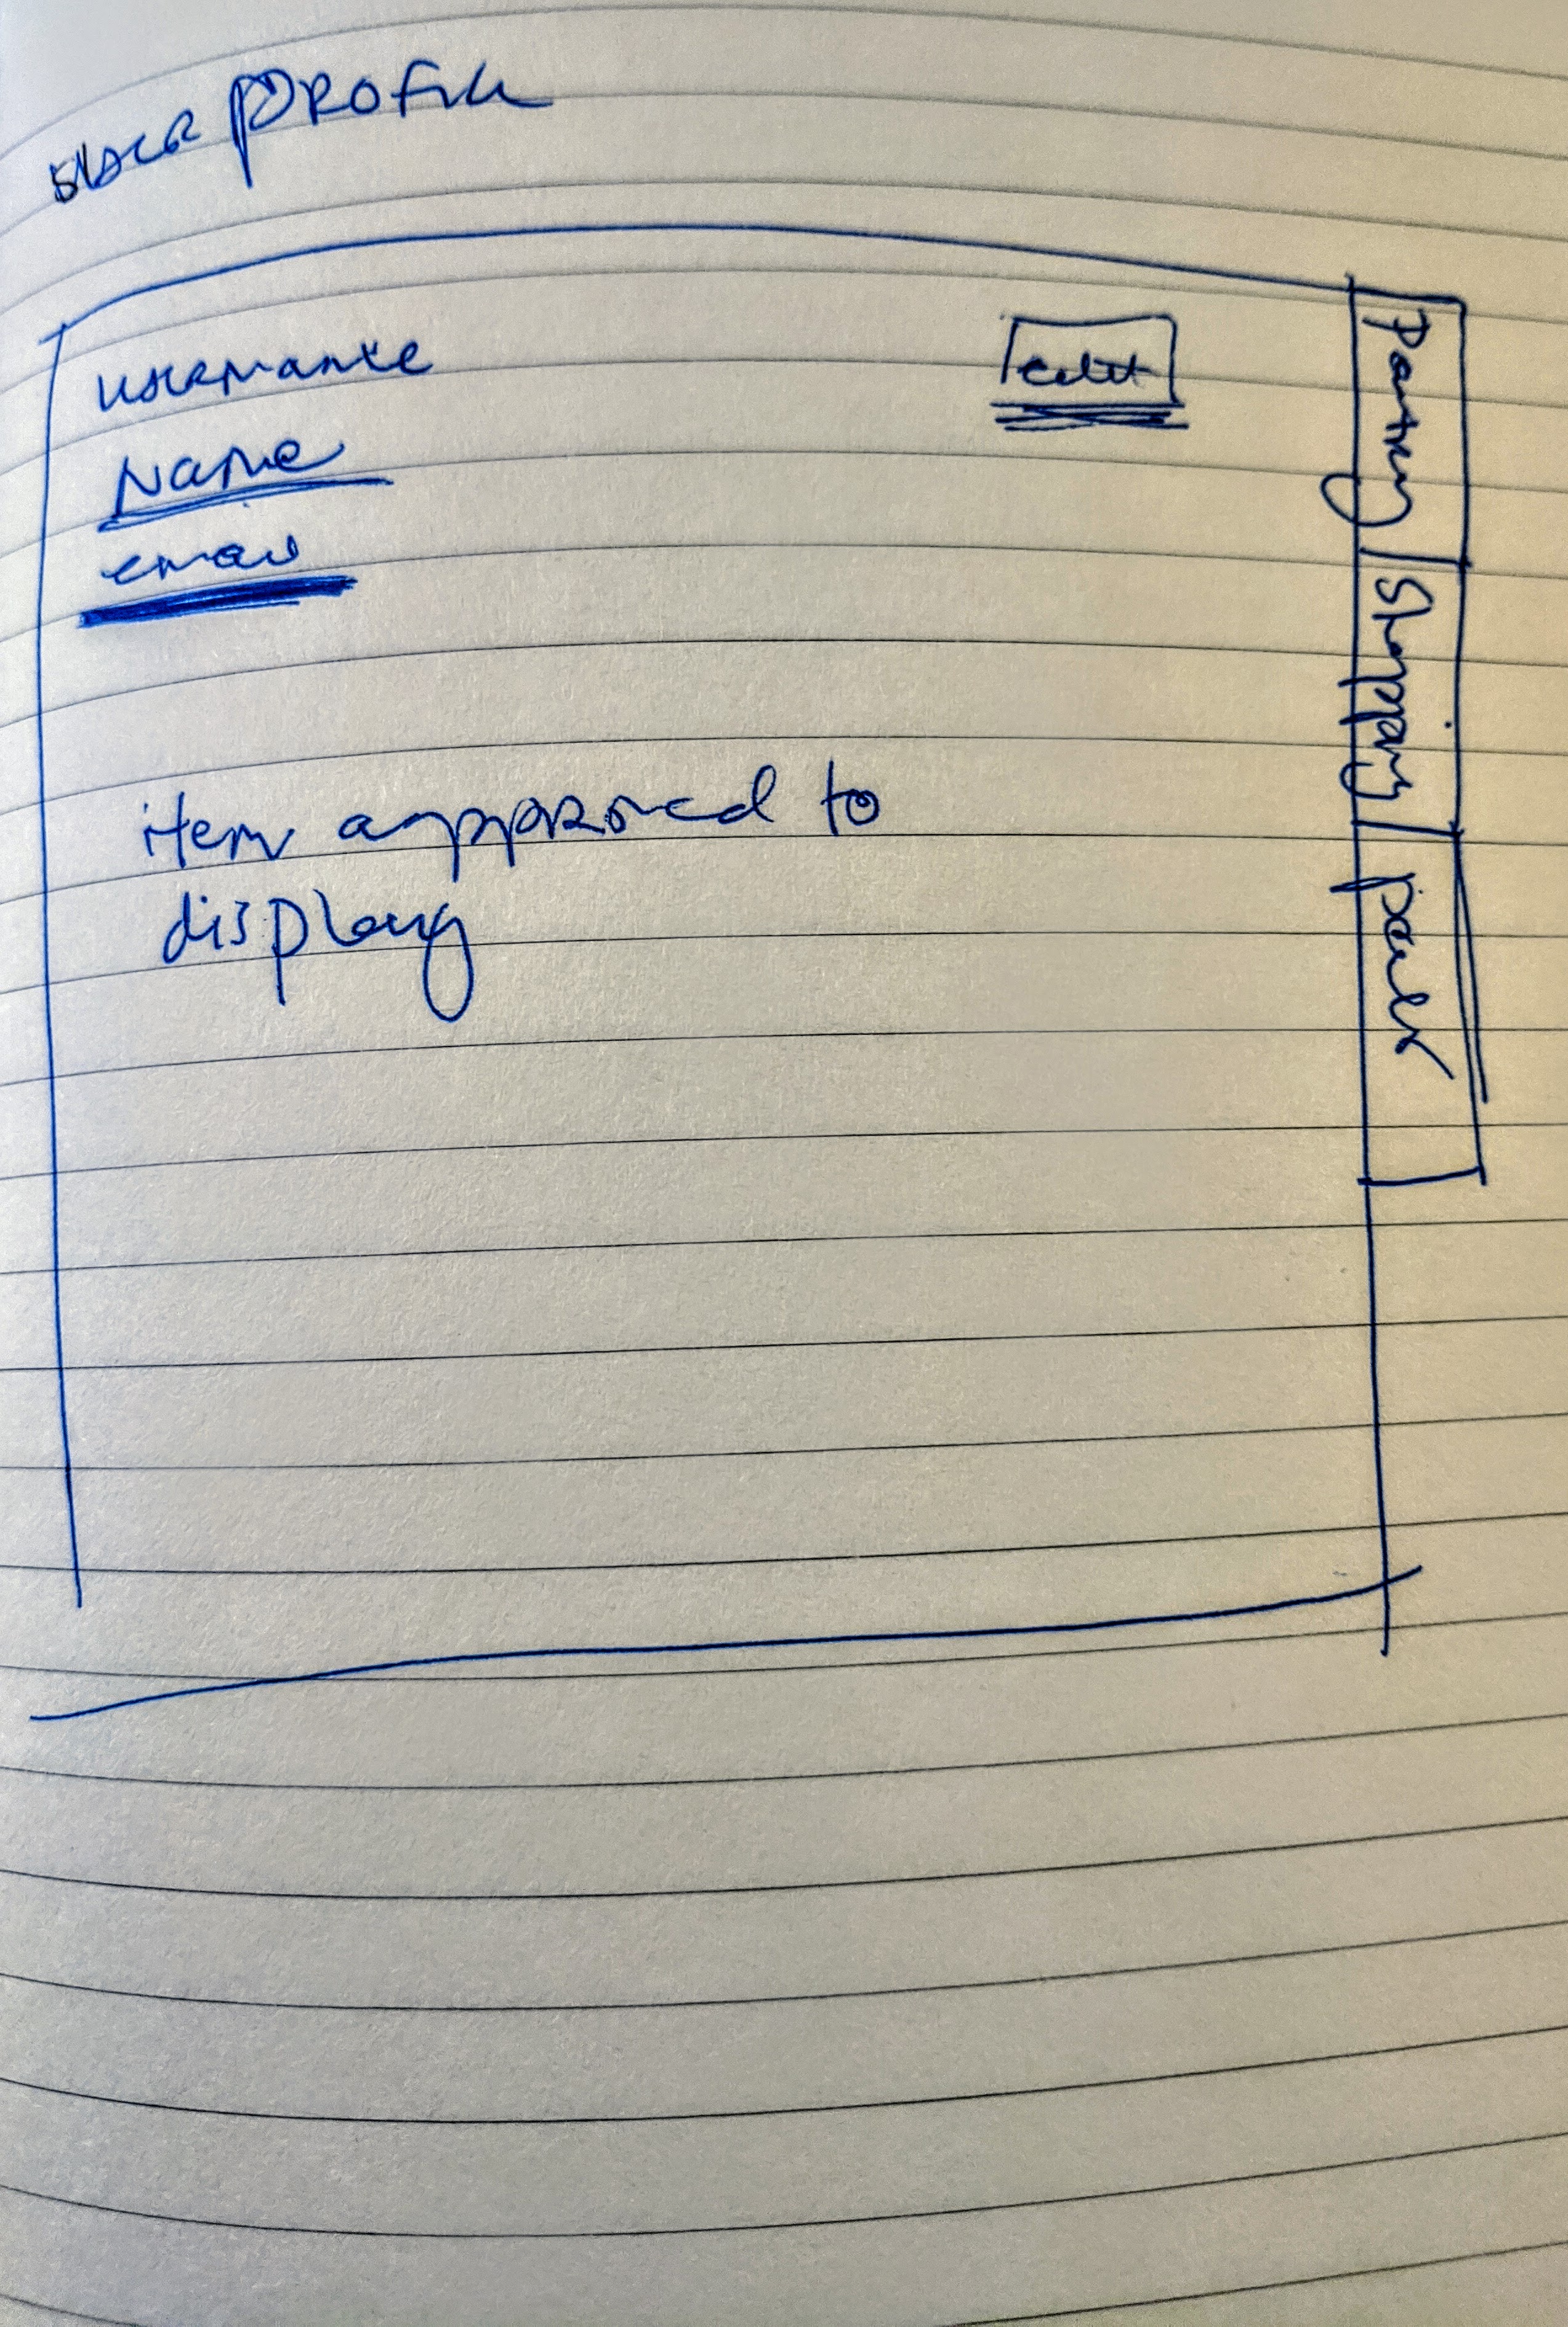 user Profile
username
edit
Name
email
item approved to
display
Pantry
Shopping